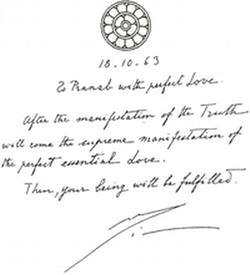 18.10.63
To Pranab with perfect Love.
After the manifestation of the Truth
will come the supreme manifestation of
the perfect essential Love.
Then, your being will be fulfilled.